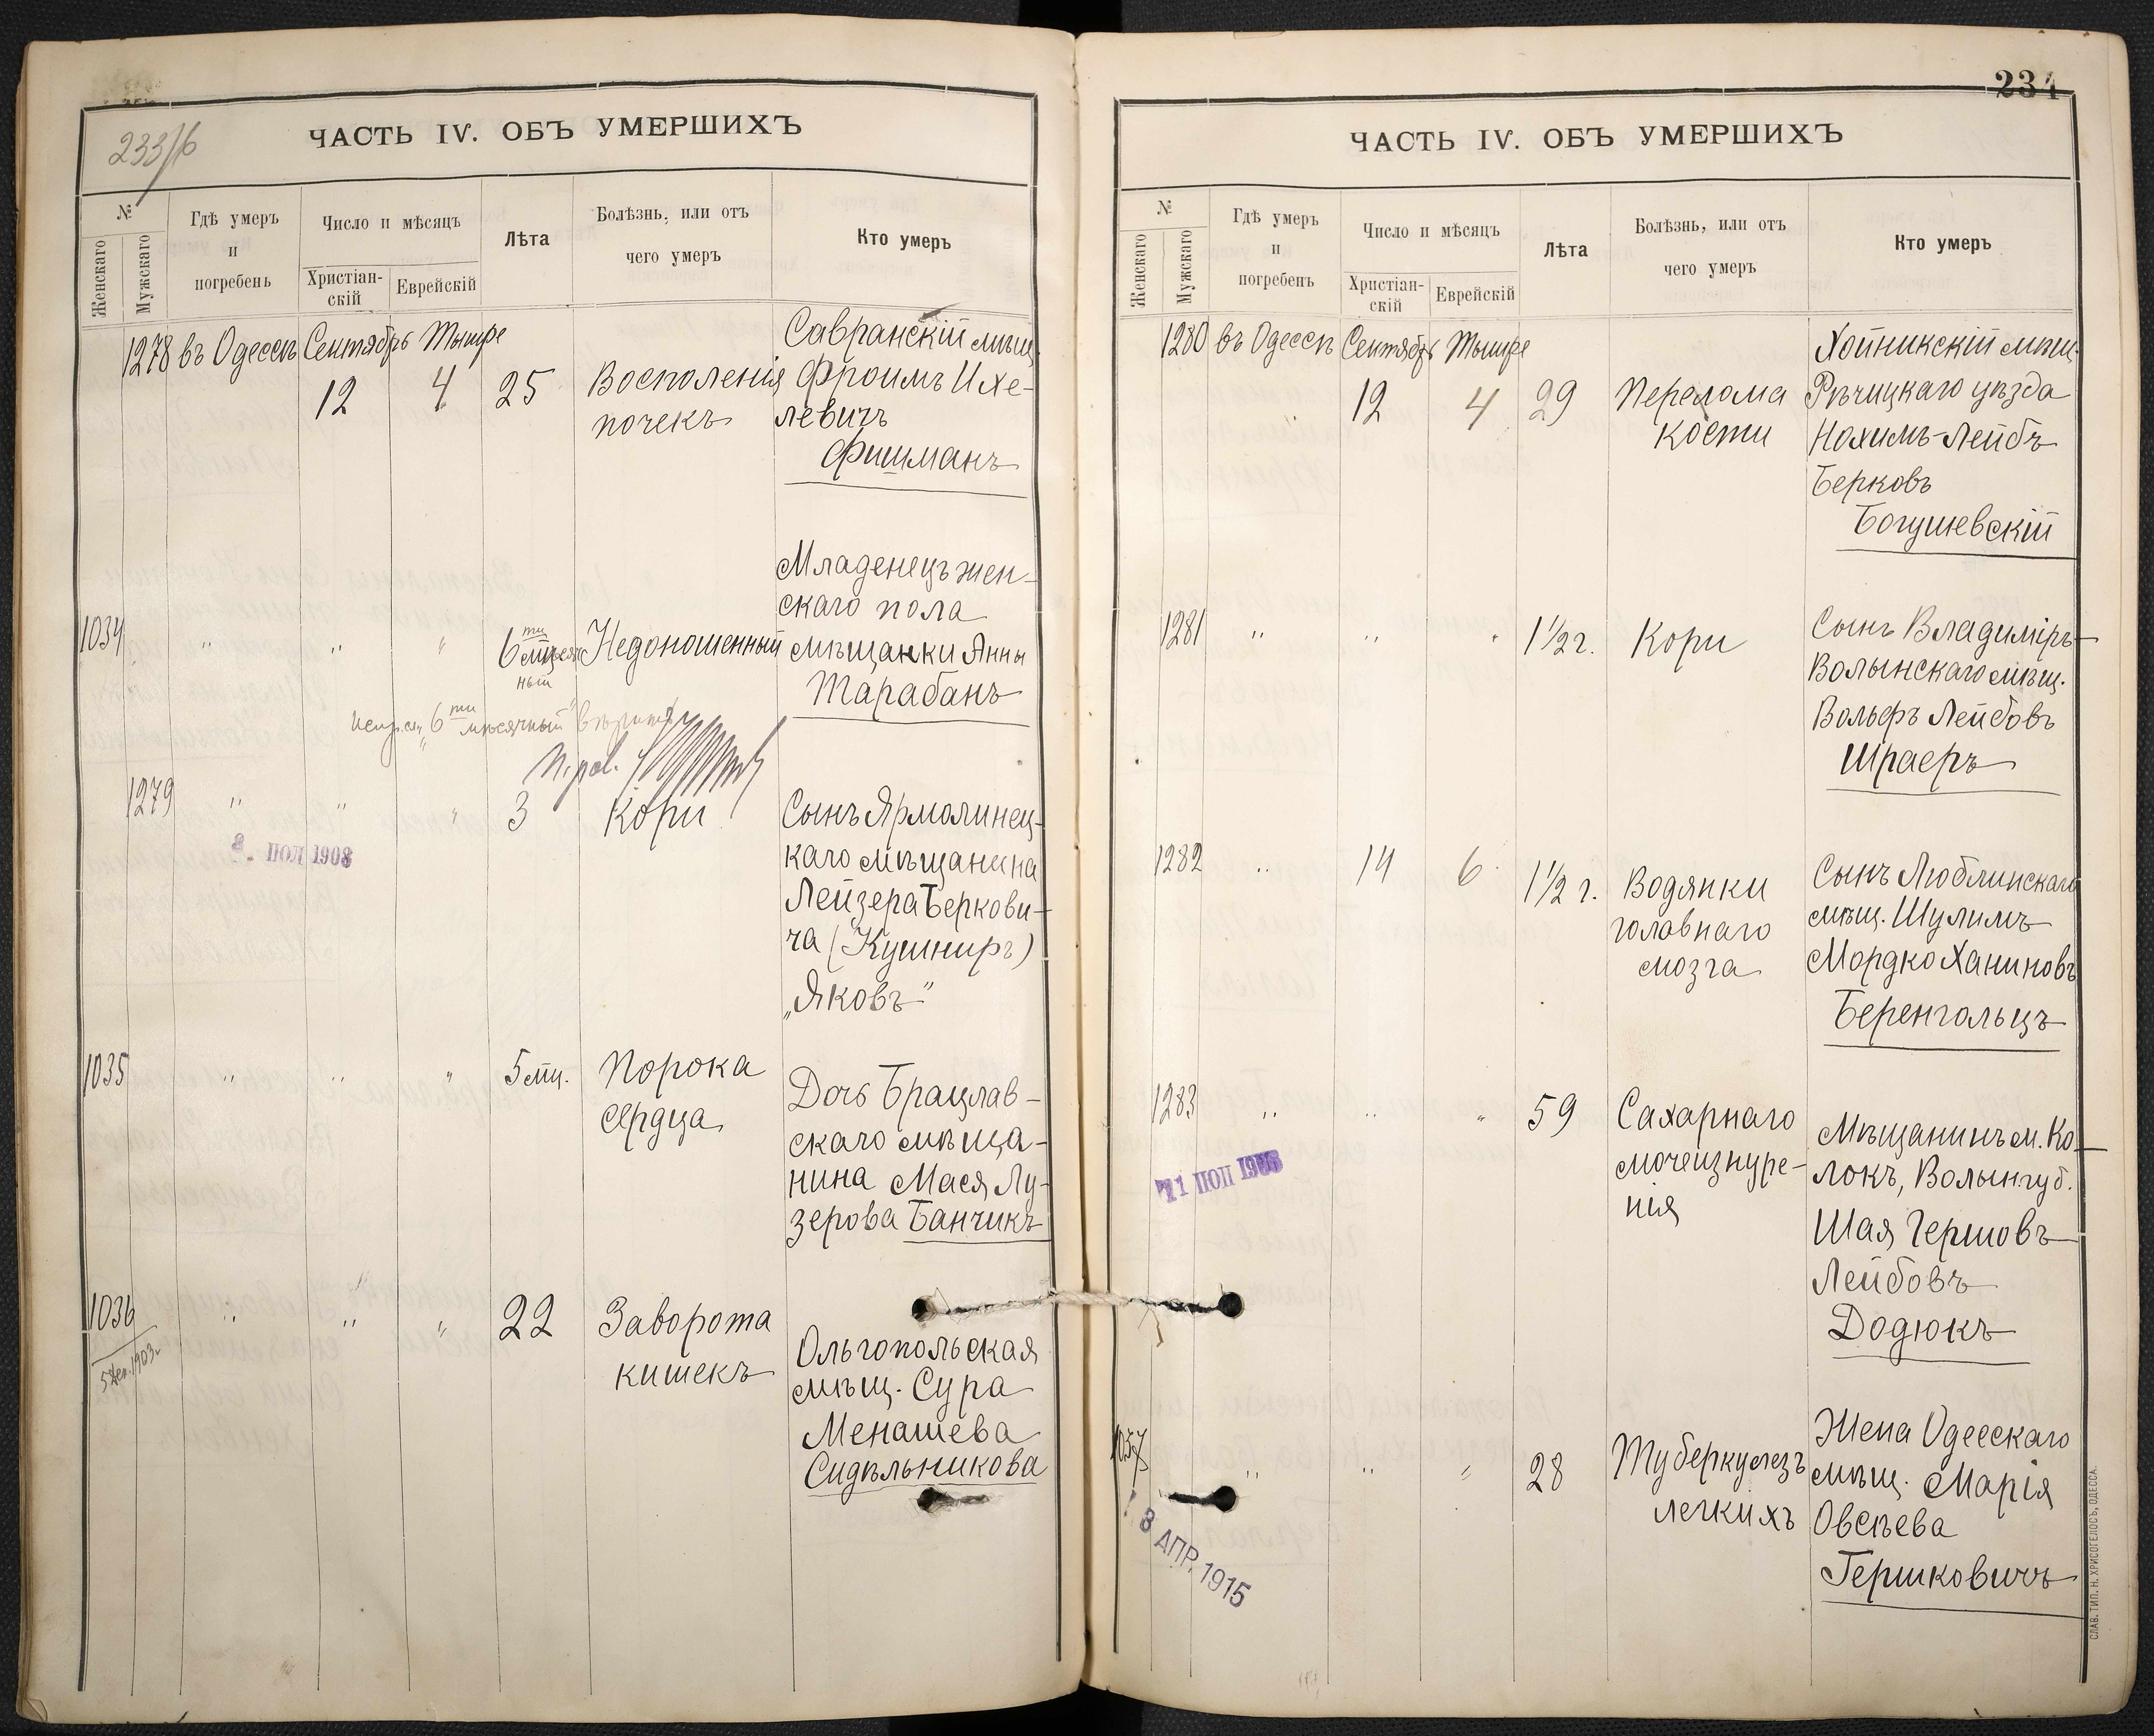 233/б
ЧАСТЬ IV. ОБЪ УМЕРШИХЪ
№
Женскаго
Мужскаго
Гдѣ умеръ
и
погребенъ
Число и мѣсяцъ
Христіан-
скій
Еврейскій
Лѣта
Болѣзнь, или отъ
чего умеръ
Кто умеръ
1278 въ Одессѣ Сентябрь Тышре
12 4 25 Воспаленія
почекъ
Савранскій мѣщ.
Фроимъ Ихе-
левичъ
Фишманъ
1034 " " " 6ти мѣсяч
ный
Недоношенный
Младенецъ жен-
скаго пола
мѣщанки Анны
Тарабанъ
"6ти мѣсячный"
1279 " " " 3 Кори
Сынъ Ярмолинец-
каго мѣщанина
Лейзера Беркови-
ча (Кушниръ)
„Яковъ"
1908
1035 " " " 5 мц. Порока
сердца
Дочь Брацлав-
скаго мѣща-
нина Мася Лу-
зерова Банчикъ
1036 " " " 22 Заворота
кишекъ
1903г
Ольгопольская
мѣщ. Сура
Менашева
Сидѣльникова
234
ЧАСТЬ IV. ОБЪ УМЕРШИХЪ
№
Женскаго
Мужскаго
Гдѣ умеръ
и
погребенъ
Число и мѣсяцъ
Христіан-
скій
Еврейскій
Лѣта
Болѣзнь, или отъ
чего умеръ
Кто умеръ
1280 въ Одессѣ Сентябрь Тышре
12 4 29 Перелома
кости
Хойникскій мѣщ.
Рѣчицкаго уѣзда
Нохимъ-Лейбъ
Берковъ
Богушевскій
1281 " " " 1½ г. Кори
Сынъ Владиміръ-
Волынскаго мѣщ.
Вольфъ Лейбовъ
Шраеръ
1282 " 14 6 1½ г. Водянки
головнаго
мозга
Сынъ Люблинскаго
мѣщ. Шулимъ
Мордко Ханиновъ
Беренгольцъ
1283 " " " 59 Сахарнаго
мочеизнуре-
нія
Мѣщанинъ м. Ко-
локъ, Волын. губ.
Шая Гершовъ
Лейбовъ
Додюкъ
1037 " " " 28 Туберкулезъ
легкихъ
Жена Одесскаго
мѣщ. Марія
Овсѣева
Гершковичъ
8 АПР. 1915
СЛАВ. ТИП. Н. ХРИСОГЕЛОСЪ, ОДЕССА.